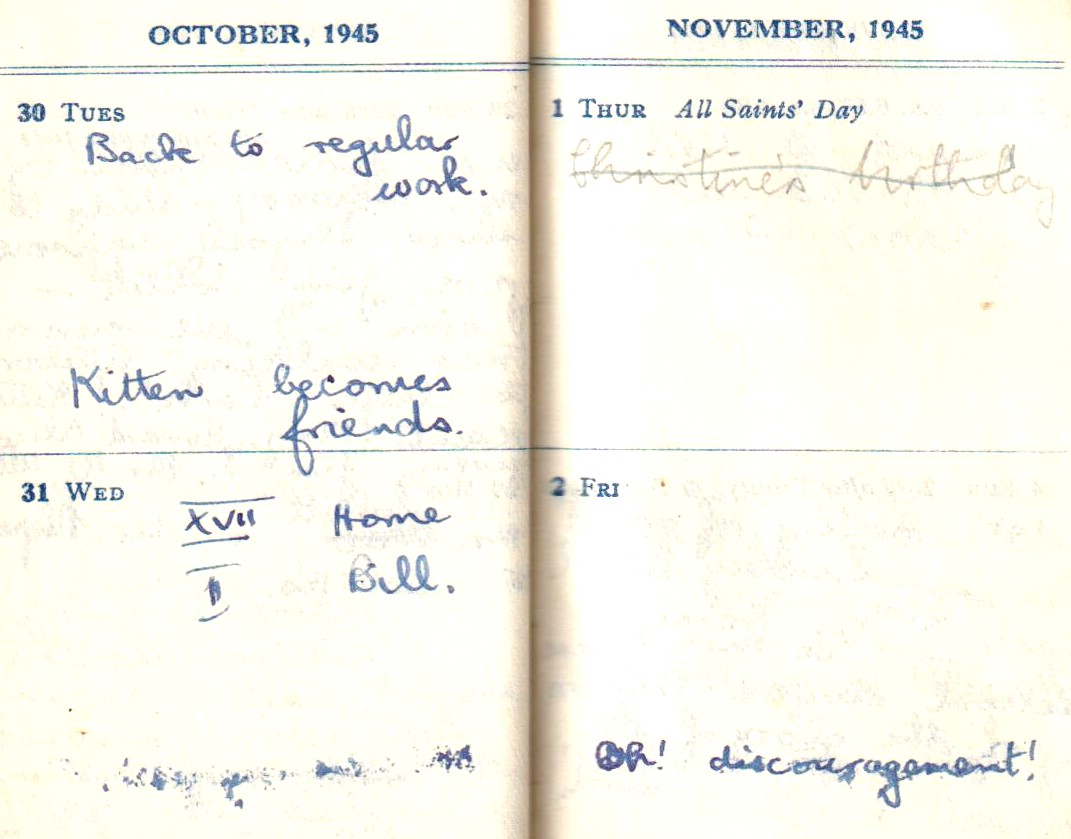 OCTOBER, 1945
30 TUES
Back to regular
work.
Kitten becomes
friends.
31 WED
XVII Home
II Bill.
NOVEMBER, 1945
1 THUR All Saints' Day
Christine's birthday
2 FRI
Oh! discouragement!